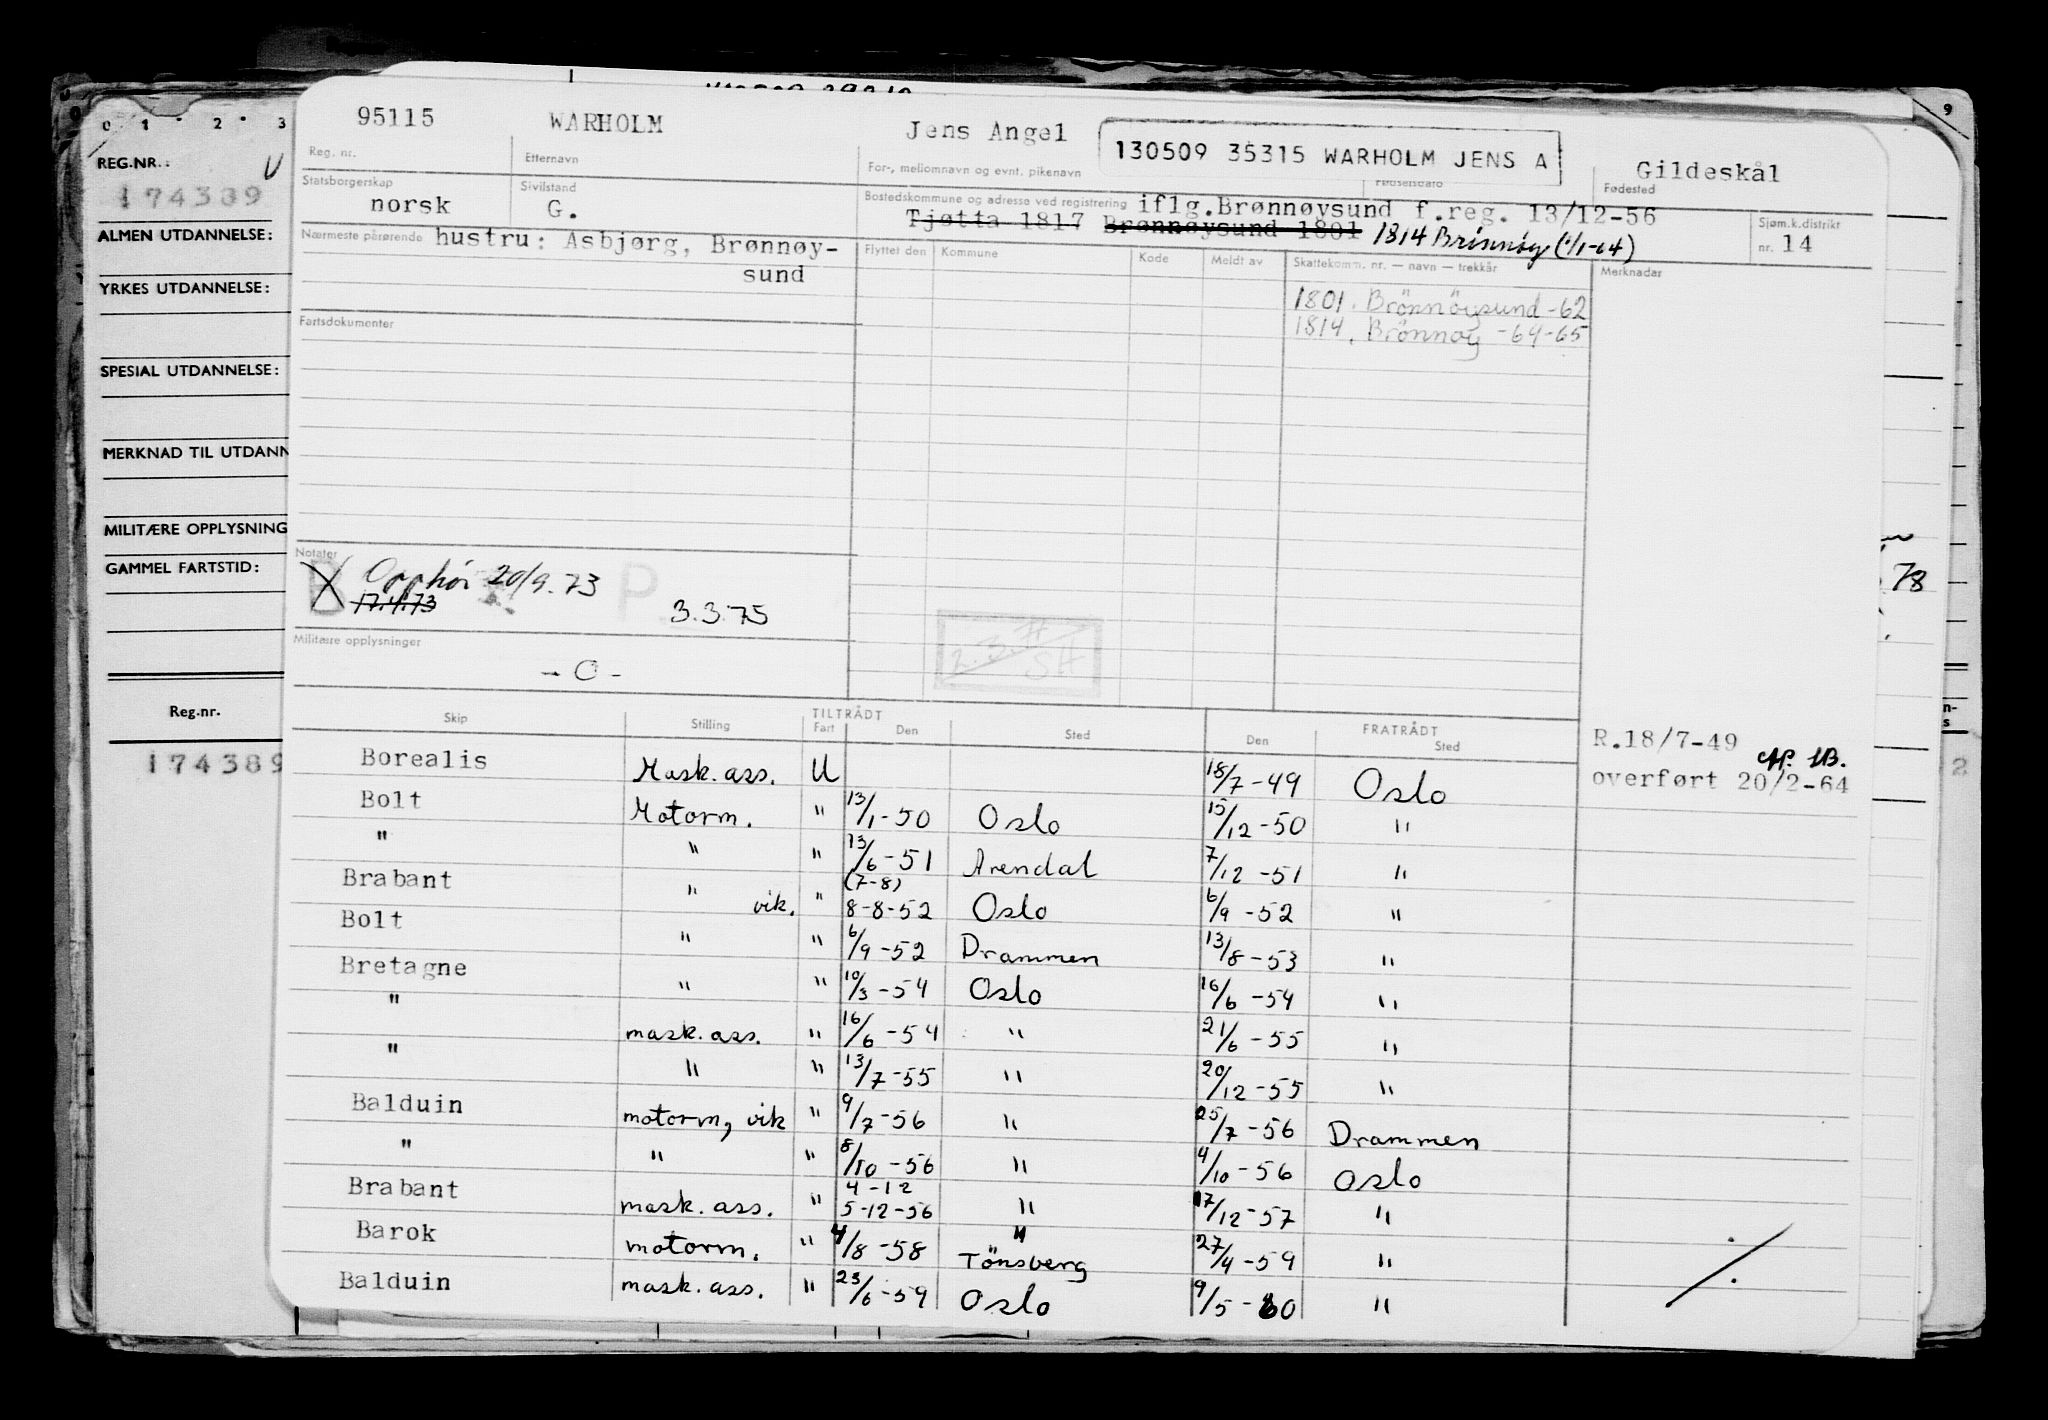 0 1 2 3
9
REG.NR.: U
174389
ALMEN UTDANNELSE:
YRKES UTDANNELSE:
SPESIAL UTDANNELSE:
MERKNAD TIL UTDANN
MILITÆRE OPPLYSNING
GAMMEL FARTSTID:
Reg.nr.
174389
78
2
95115 WARHOLM Jens Angel 130509 35315 WARHOLM JENS A Gildeskål
Reg. nr. Etternavn For-, mellomnavn og evnt. pikenavn Fødselsdato Fødested
Statsborgerskap Sivilstand Bostedskommune og adresse ved registrering iflg.Brønnøysund f.reg. 13/12-56 Sjøm.k.distrikt
norsk G. Tjøtta 1817 Brønnøysund 1801 1814 Brønnøy (1/1-64) nr. 14
Nærmeste pårørende hustru: Asbjørg, Brønnøy-
sund
Flyttet den Kommune Kode Meldt av Skattekomm. nr. — navn — trekkår Merknader
1801. Brönnöysund -62
1814, Brönnöy -64-65
Fartsdokumenter
Notater
B Opphör 20/9.73 P
17.4.73 3.3.75
2.3.# SH
Militære opplysninger
- O -
Skip Stilling TILTRÅDT Fart Den Sted FRATRÅDT Den Sted
R.18/7-49
overført 20/2-64
Borealis Mask. ass. U 18/7-49 Oslo
Bolt Motorm. " 13/1-50 Oslo 15/12-50 "
" " " 13/6-51 Arendal 7/12-51 "
Brabant " vik. " (7-8) 8-8-52 Oslo 6/9-52 "
Bolt " " 6/9-52 Drammen 13/8-53 "
Bretagne " " 10/3-54 Oslo 16/6-54 "
" mask. ass. " 16/6-54 " 21/6-55 "
" " " 13/7-55 " 20/12-55 "
Balduin motorm, vik " 9/7-56 " 25/7-56 Drammen
" " " 8/10-56 " 4/10-56 Oslo
Brabant mask. ass. " 4-12 5-12-56 " 17/12-57 "
Barok motorm. " 4/8-58 " Tönsberg 27/4-59 "
Balduin mask. ass. " 23/6-59 Oslo 9/5-60 "